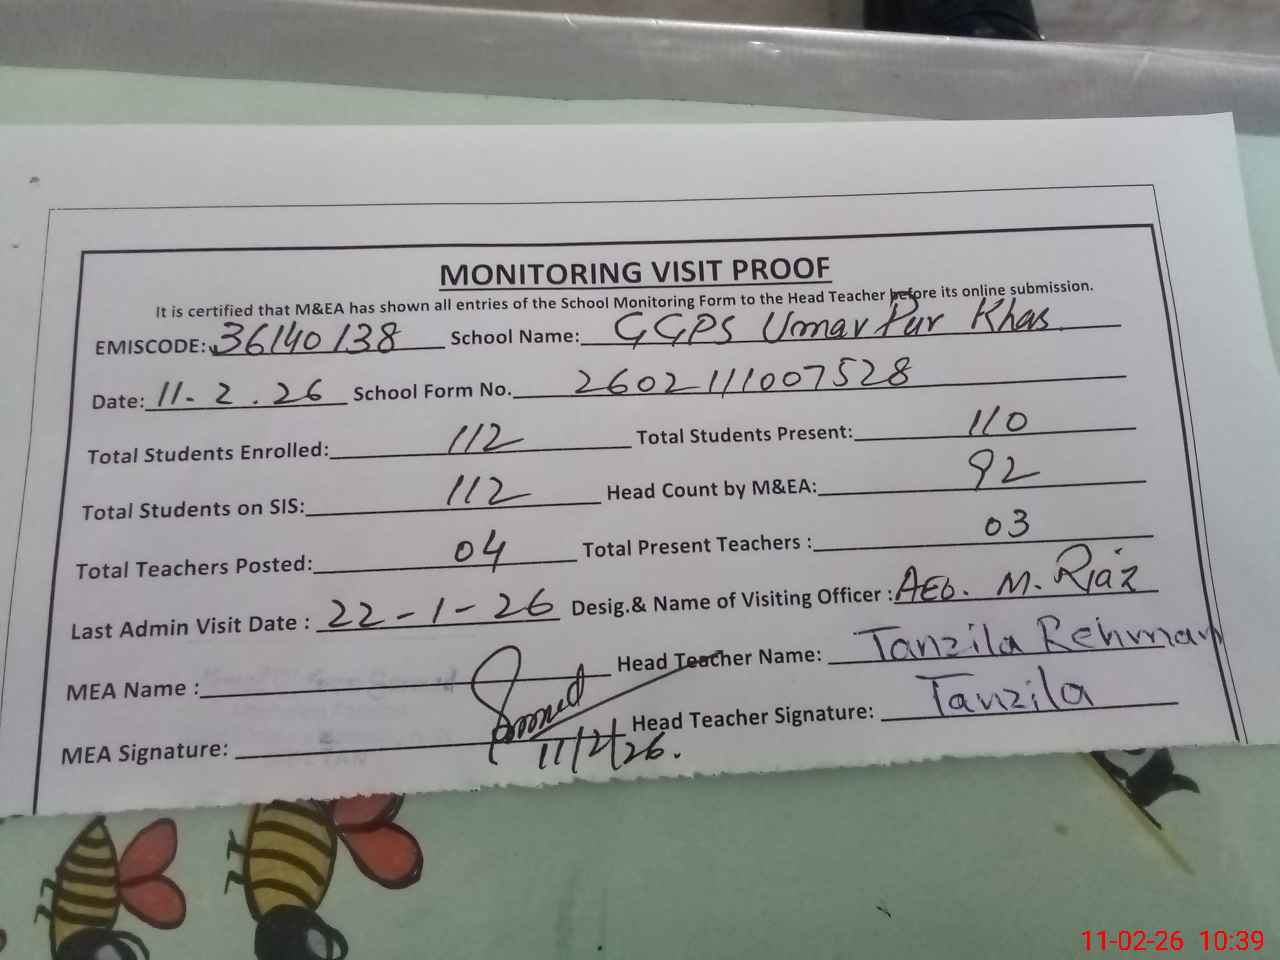 MONITORING VISIT PROOF
It is certified that M&EA has shown all entries of the School Monitoring Form to the Head Teacher before its online submission.
EMISCODE: 36140138 School Name: GGPS Umar Pur Khas
Date: 11-2.26 School Form No. 2602111007528
Total Students Enrolled: 112 Total Students Present: 110
Total Students on SIS: 112 Head Count by M&EA: 92
Total Teachers Posted: 04 Total Present Teachers : 03
Last Admin Visit Date : 22-1-26 Desig.& Name of Visiting Officer : AEO. M. Riaz
MEA Name : Head Teacher Name: Tanzila Rehman
MEA Signature: 11/2/26. Head Teacher Signature: Tanzila
11-02-26 10:39